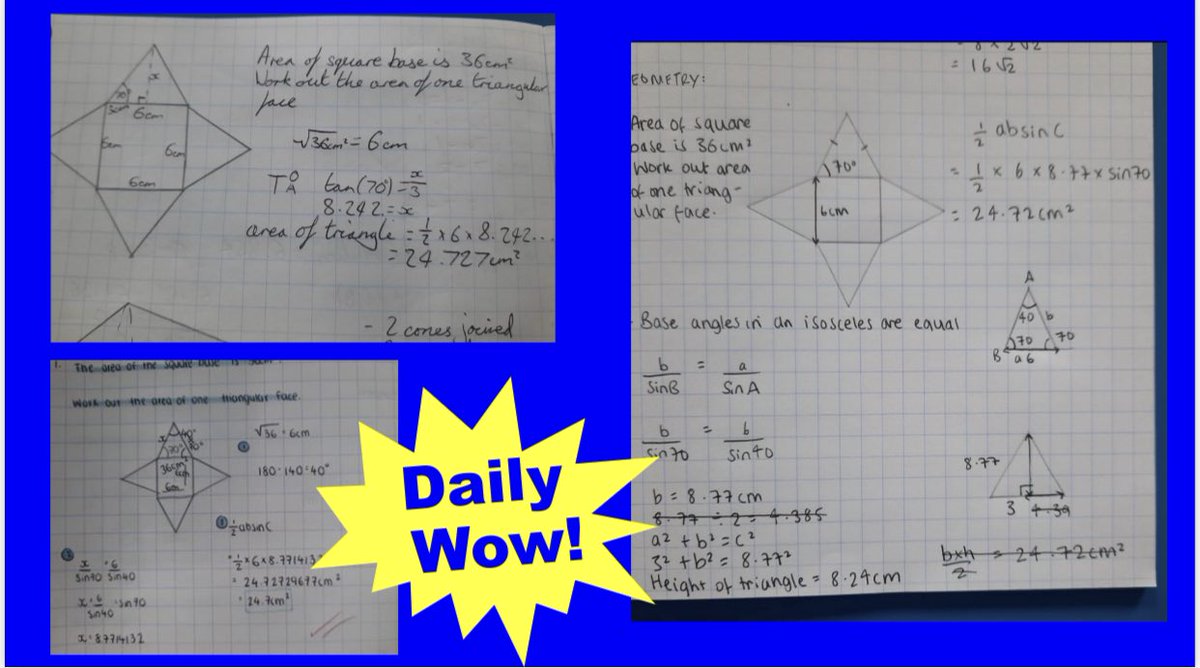 Area of square base is 36cm²
Work out the area of one triangular
face
x
70°
3
6cm
6cm
6cm
6cm
√36cm² = 6cm
TOA tan(70) = x/3
8.242 = x
area of triangle = ½ × 6 × 8.242...
= 24.727cm²
- 2 cones joined
Work out the area of one triangular face.
x
40°
70°
70°
36cm²
6cm
6cm
① √36 = 6cm
180-140=40°
½absinC
= ½×6×8.771413
= 24.72729677cm²
= 24.7cm²
x/sin70 = 6/sin40
x = 6/sin40 × sin70
x = 8.7714132
Daily
Wow!
= 16√2
EOMETRY:
Area of square
base is 36cm²
Work out area
of one triang-
ular face.
70°
6cm
½ absinC
= ½ × 6 × 8.77 × sin70
= 24.72cm²
Base angles in an isosceles are equal
A
40 b
70 70
B a 6
b/sinB = a/sinA
b/sin70 = 6/sin40
b = 8.77cm
8.77 ÷ 2 = 4.385
a² + b² = c²
3² + b² = 8.77²
Height of triangle = 8.24cm
8.77
3 4.39
bxh/2 = 24.72cm²